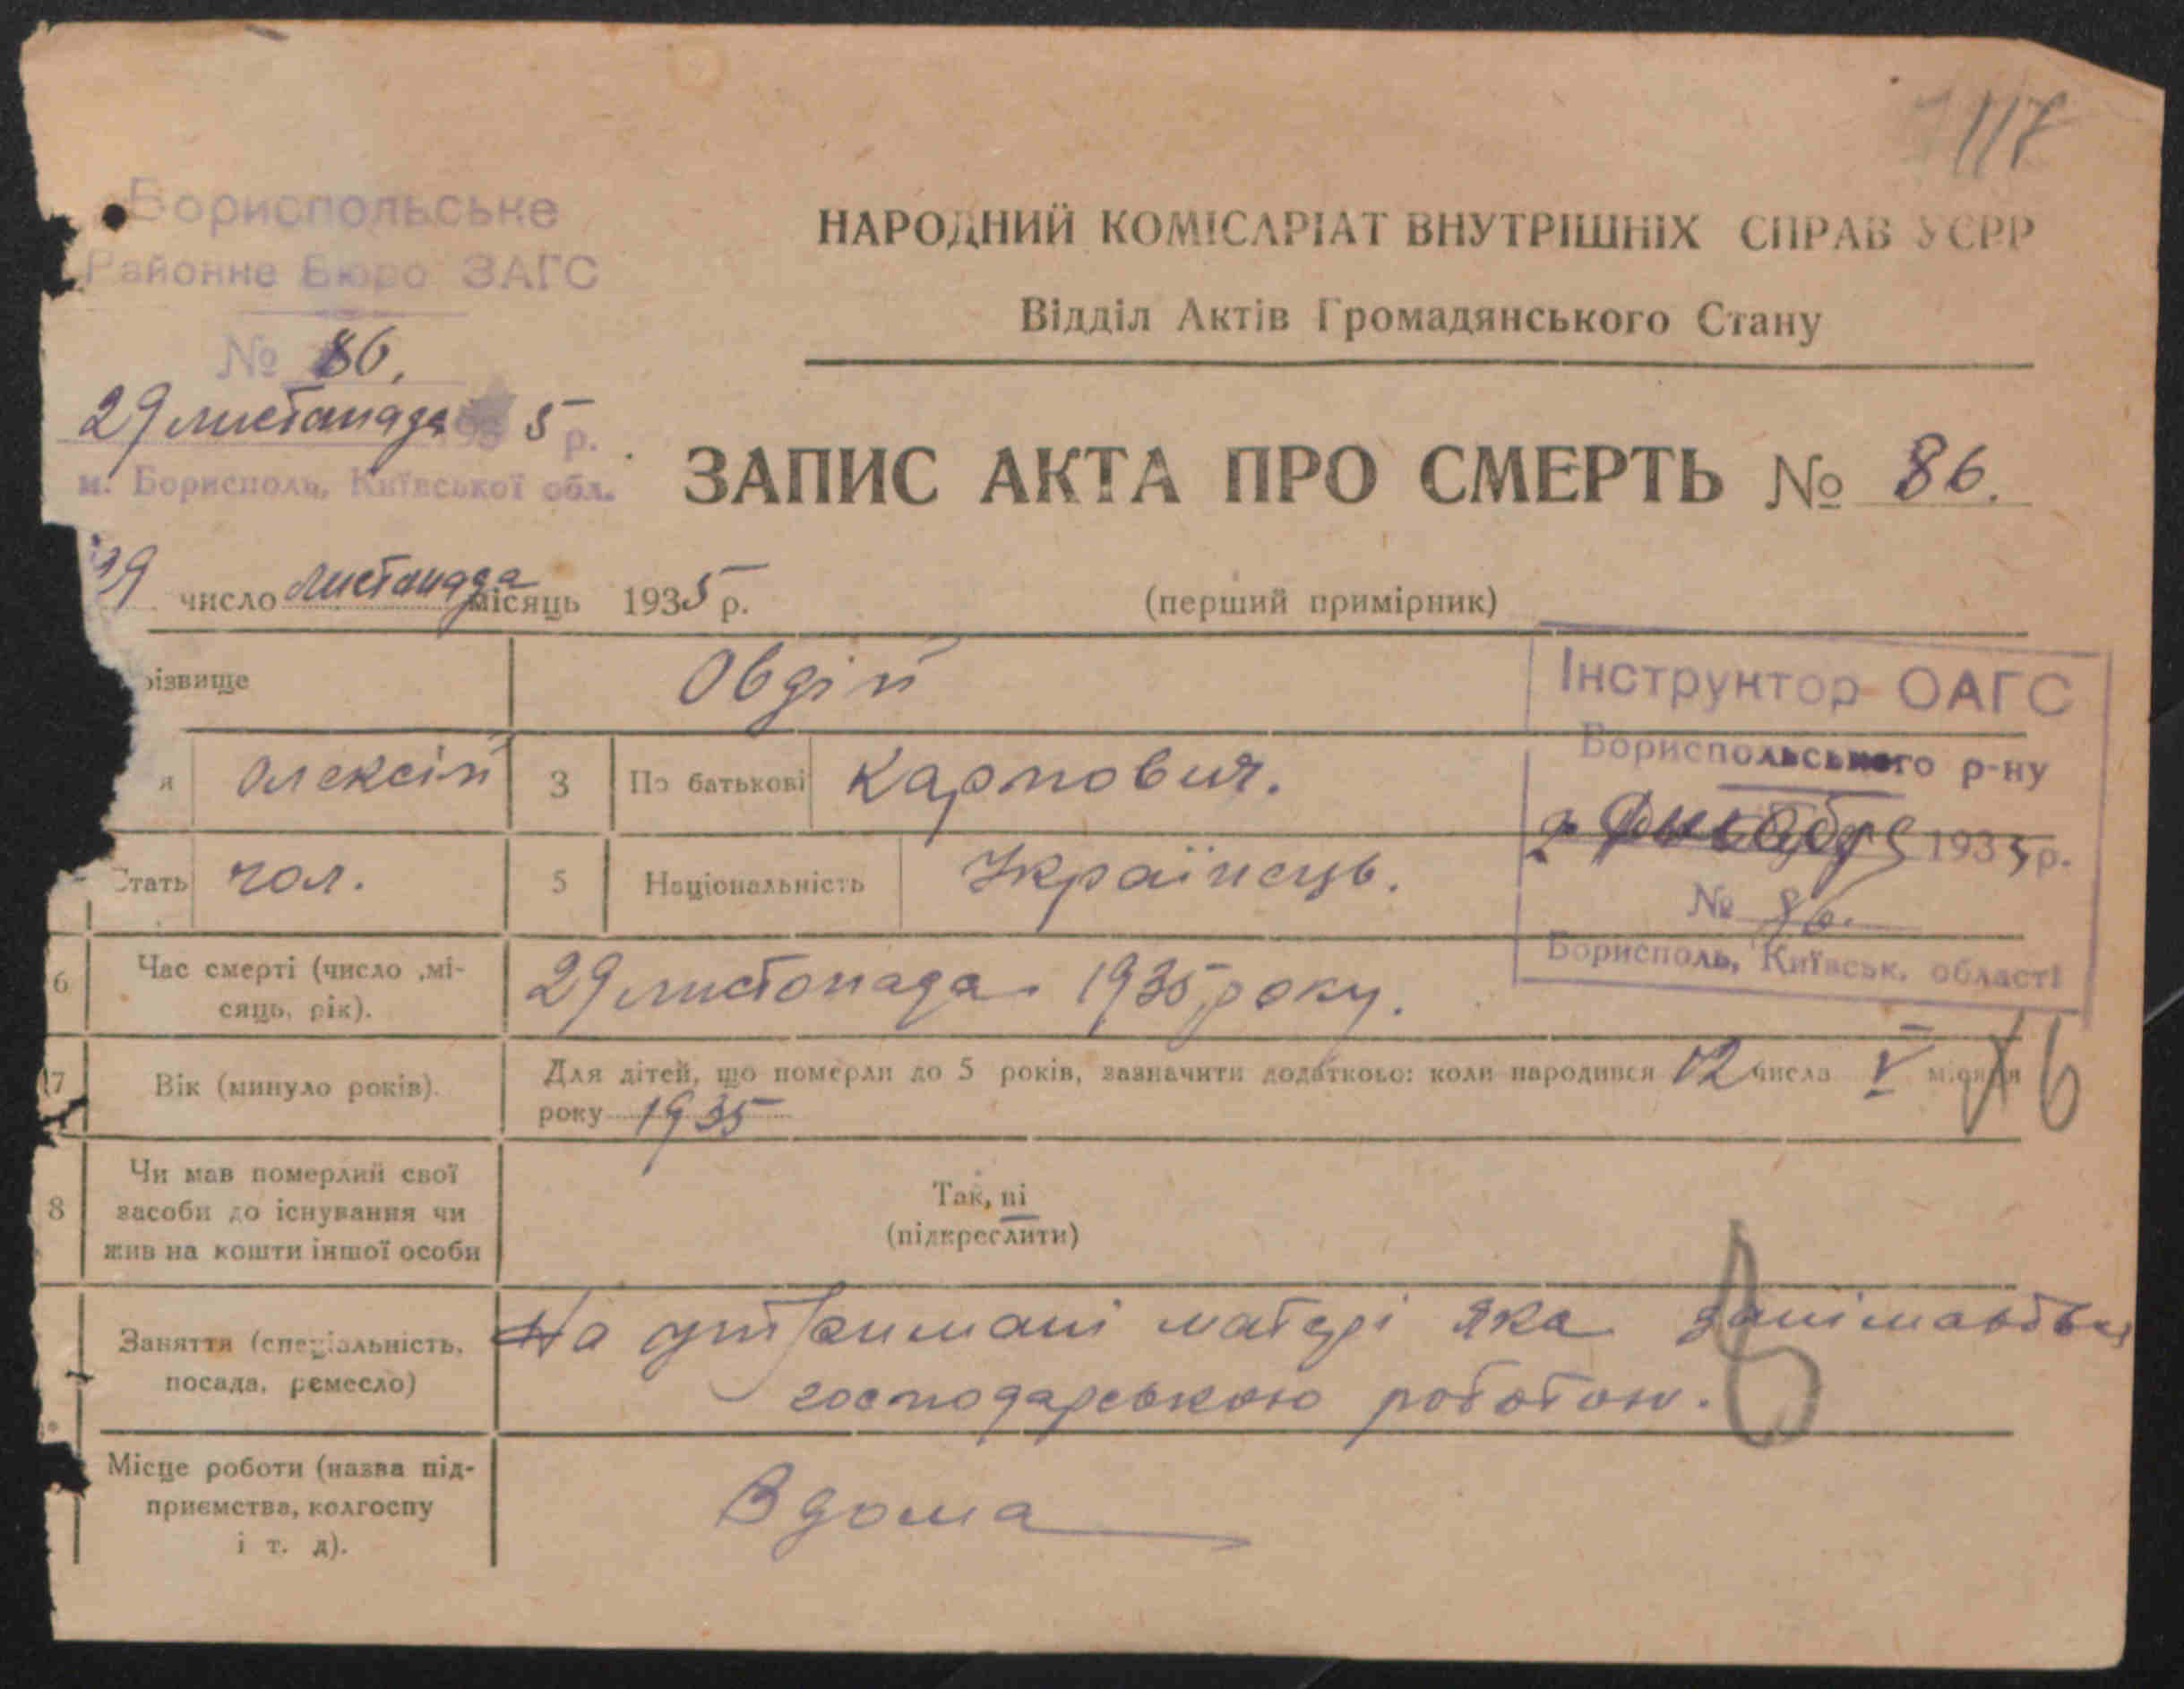 117
Бориспольське
Районне Бюро ЗАГС
№ 86.
29 листопада 1935 р.
м. Борисполь, Київської обл.
НАРОДНИЙ КОМІСАРІАТ ВНУТРІШНІХ СПРАВ УСРР
Відділ Актів Громадянського Стану
ЗАПИС АКТА ПРО СМЕРТЬ № 86.
29 число листопада місяць 1935 р. (перший примірник)
різвище Овдій
я Олексій 3 По батькові Карпович.
Стать чол. 5 Національність Українець.
Інструктор ОАГС
Бориспольського р-ну
1935 р.
№ 86.
Борисполь, Київськ. області
6 Час смерті (число ,мі-
сяць, рік). 29 листопада 1935 року.
7 Вік (минуло років). Для дітей, що померли до 5 років, зазначити додатково: коли народився 12 числа V місяця
року 1935
6
8 Чи мав померлий свої
засоби до існування чи
жив на кошти іншої особи
Так, ні
(підкреслити)
Заняття (спеціальність,
посада, ремесло)
На утримані матері яка занімається
господарською роботою.
Місце роботи (назва під-
приємства, колгоспу
і т. д).
Вдома